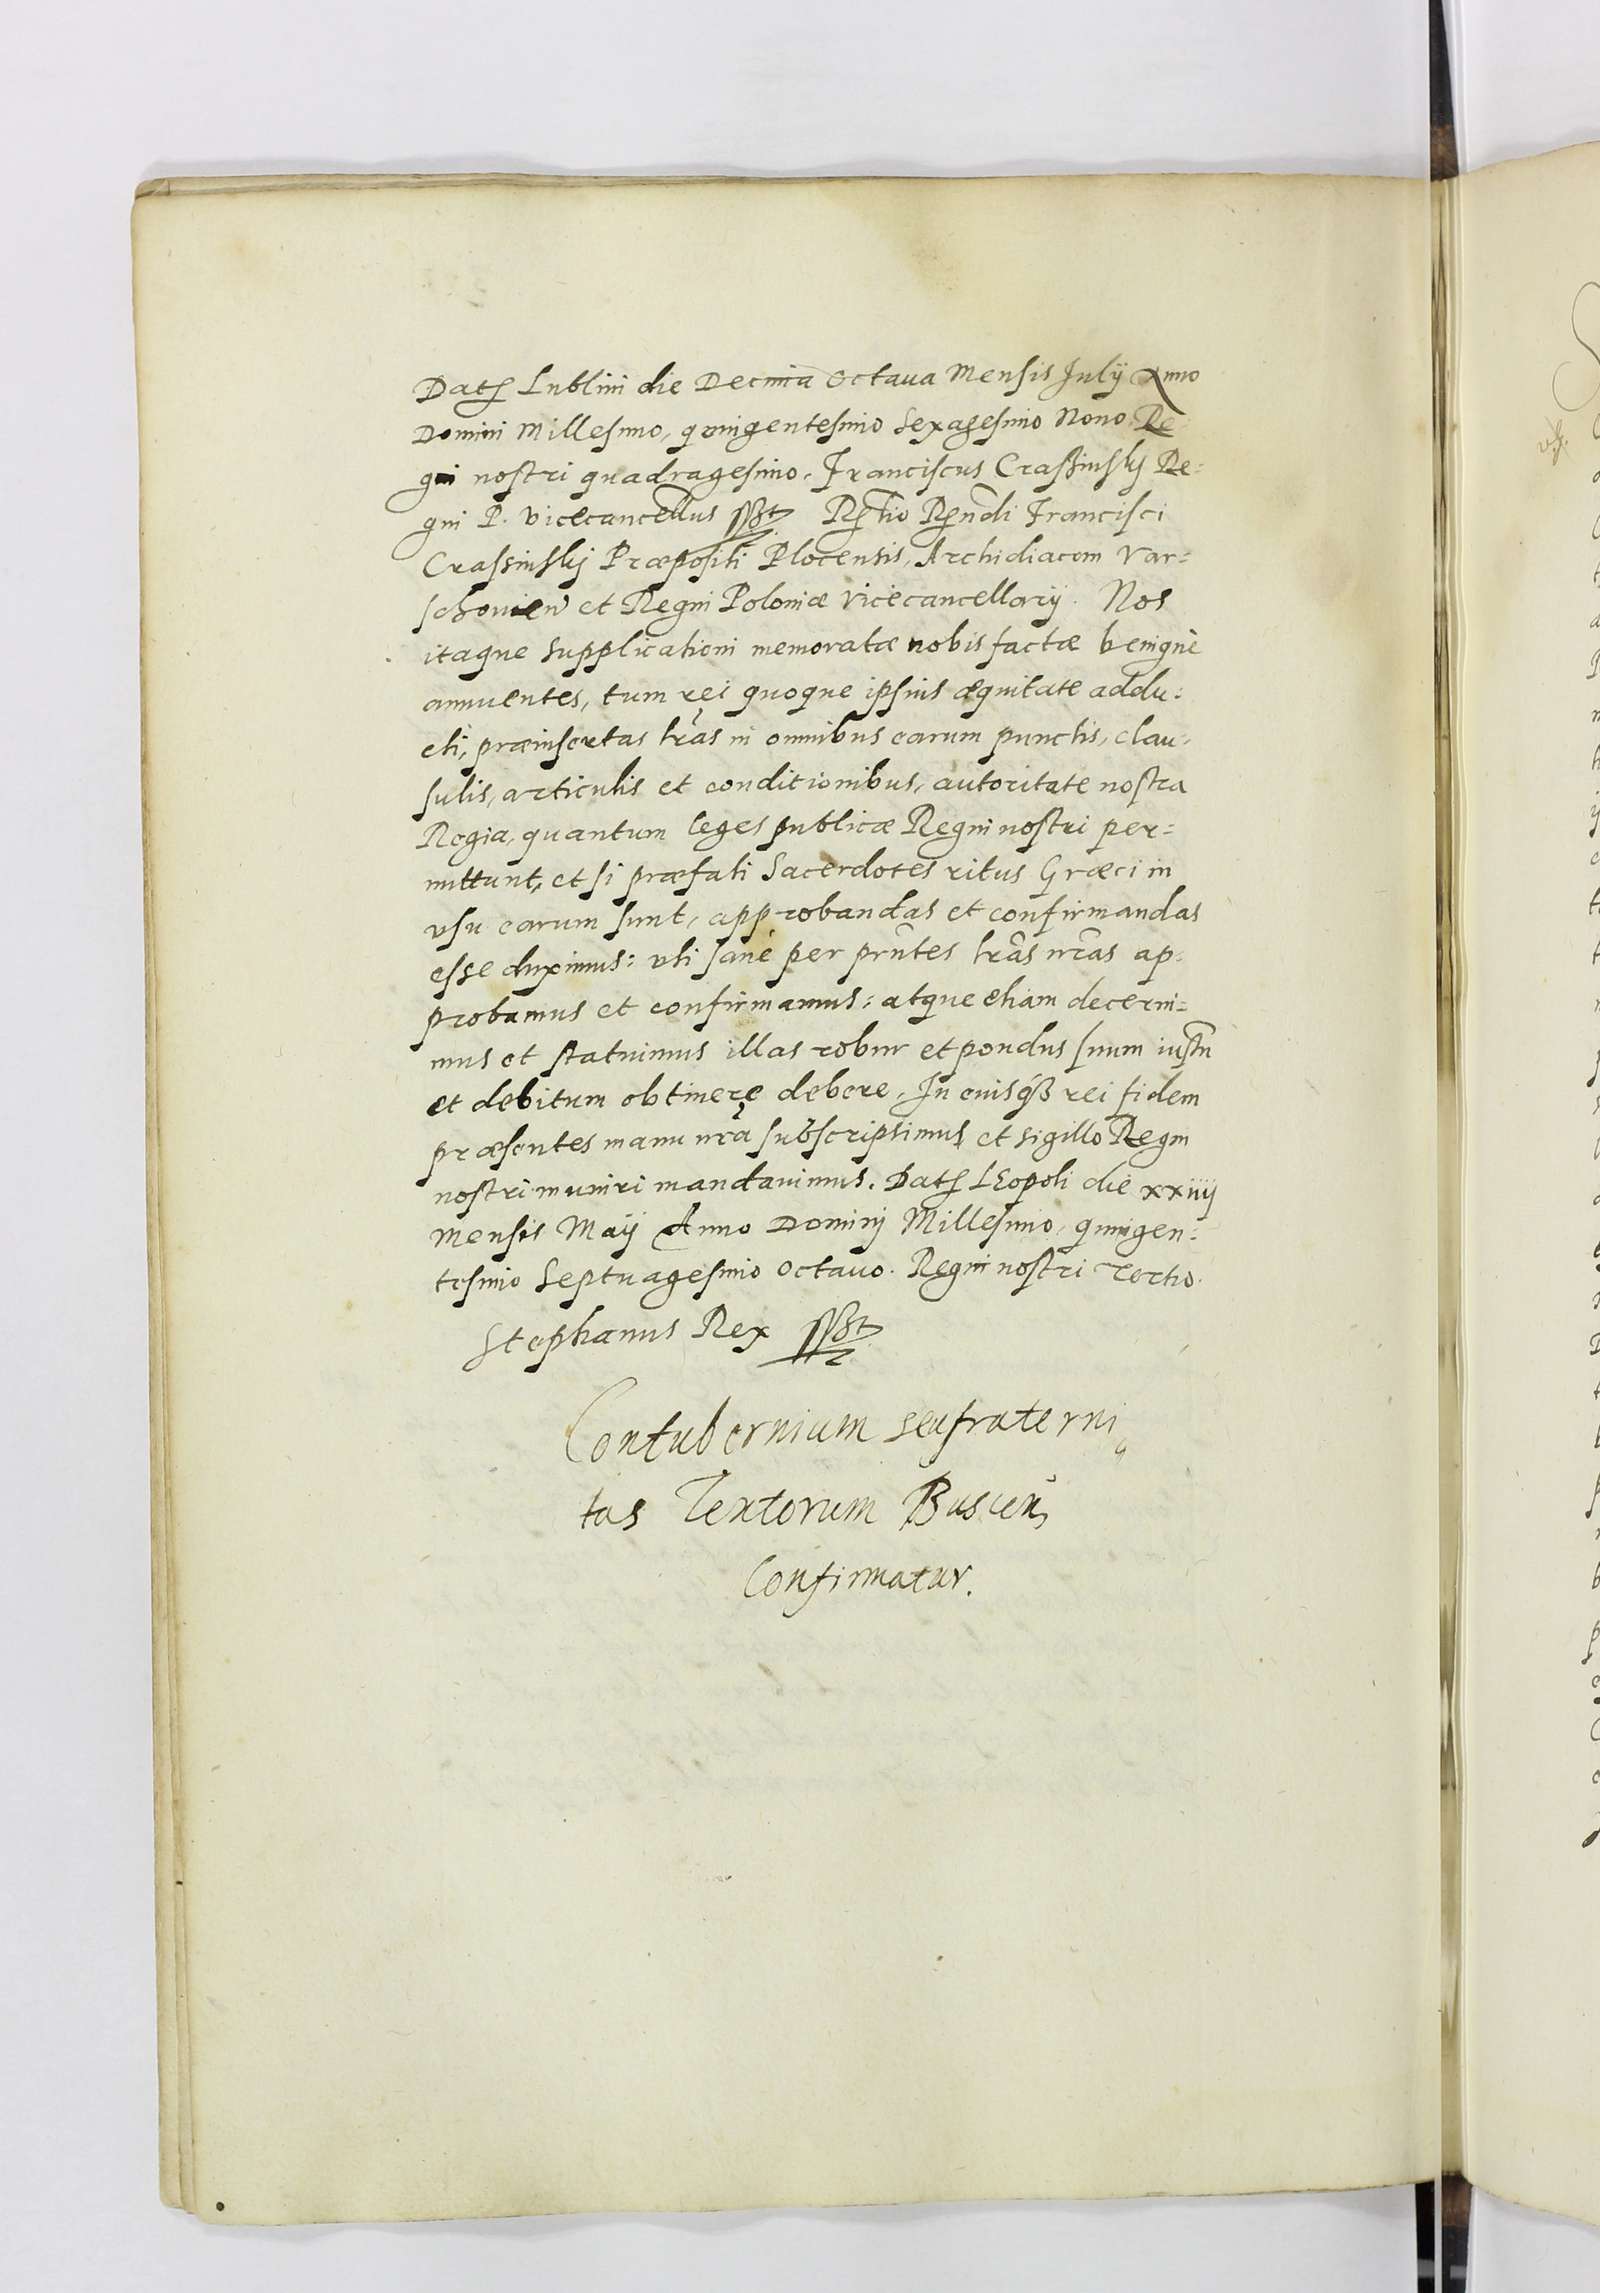 Dat̃ Lublini die Decima Octaua Mensis Julÿ Anno
Domini Millesimo, quingentesimo Sexagesimo Nono Re
gni nostri quadragesimo. Franciscus Craßinskÿ Re-
gni P. Vicecancellus sßt Rtio Rndi Francisci
Crassinskÿ Præpositi Plocensis, Archidiaconi Var-
schouien̄ et Regni Poloniæ Vicecancellarÿ. Nos
itaque Supplicationi memoratæ nobis factæ benignè
annuentes, tum rei quoque ipsius æquitate addu-
cti, præinsertas lr̃as in omnibus earum punctis, clau-
sulis, articulis et conditionibus, autoritate nostra
Regia, quantum leges publicæ Regni nostri per-
mittunt, et si præfati Sacerdotes ritus Græci in
vsu earum sunt, approbandas et confirmandas
esse duximus: vti sanè per pr̃ntes lr̃as nr̃as ap-
probamus et confirmamus: atque etiam decerni-
mus et statuimus illas robur et pondus suum iustũ
et debitum obtinere debere. In cuius rei fidem
præsentes manu nr̃a subscripsimus et sigillo Regni
nostri muniri mandauimus. Dat̃ LEopoli die xxiiij
Mensis Maÿ Anno Dominÿ Millesimo, quingen-
tesimo Septuagesimo Octauo. Regni nostri Tertio.
Stephanus Rex sßt
Contubernium seu fraterni
tas Textorum Buscen̄
Confirmatur.